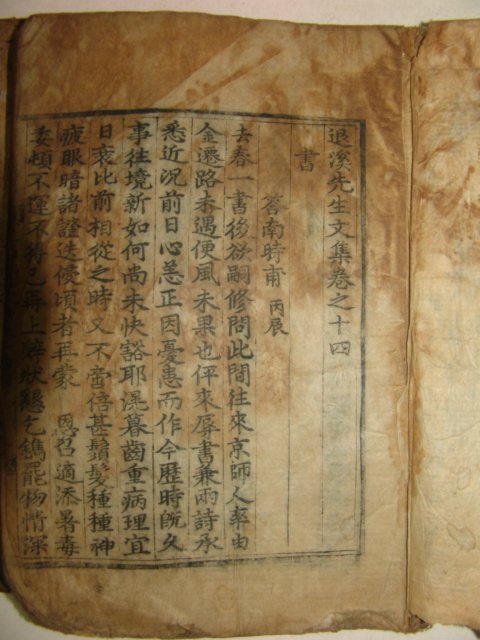 退溪先生文集卷之十四
書
答南時甫 丙辰
去春一書後欲嗣修問此間往來京師人率由
金遷路未遇便風未果也伻來辱書兼兩詩承
悉近況前日心恙正因憂患而作今歷時旣久
事往境新如何尚未快豁耶滉暮齒重病理宜
日衰比前相從之時又不啻倍甚鬚髮種種神
疲眼暗諸證迭侵頃者再蒙 恩召適添暑毒
委頓不運不得已再上辭狀懇乞鐫罷物情深